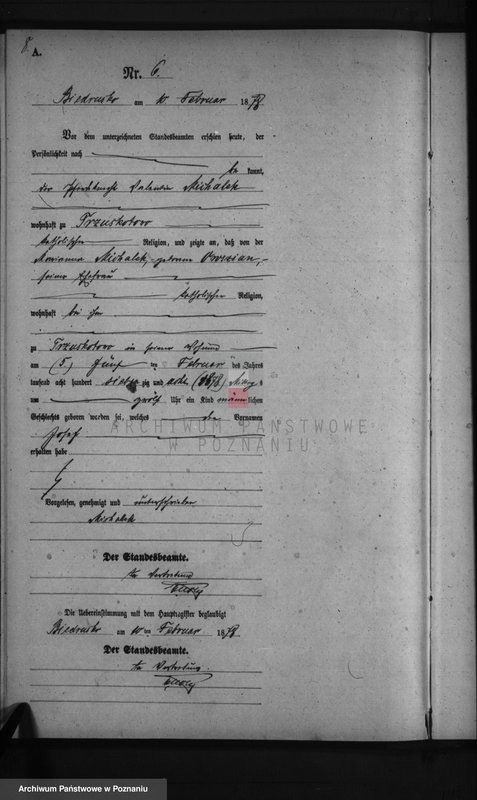 8.
A.
Nr. 6.
Biedrusko am 10 Februar 1878
Vor dem unterzeichneten Standesbeamten erschien heute, der
Persönlichkeit nach
be kannt,
der Pferdeknecht Valentin Michalek
wohnhaft zu
katholischer Religion, und zeigte an, daß von der
Marianna Michalek, geborene
seiner Ehefrau
katholischer Religion,
wohnhaft bei ihm
zu in seiner Wohnung
am (5) fünf ten Februar des Jahres
tausend acht hundert siebenzig und acht (1878) Mittags
um zwölf Uhr ein Kind männlichen
Geschlechts geboren worden sei, welches den Vornamen
Josef
erhalten habe
Vorgelesen, genehmigt und unterschrieben
Michalek
Der Standesbeamte.
In Vertretung
Die Uebereinstimmung mit dem Hauptregister beglaubigt
Biedrusko am 10 ten Februar 1878
Der Standesbeamte.
In Vertretung.
ARCHIWUM PAŃSTWOWE
W POZNANIU
Archiwum Państwowe w Poznaniu